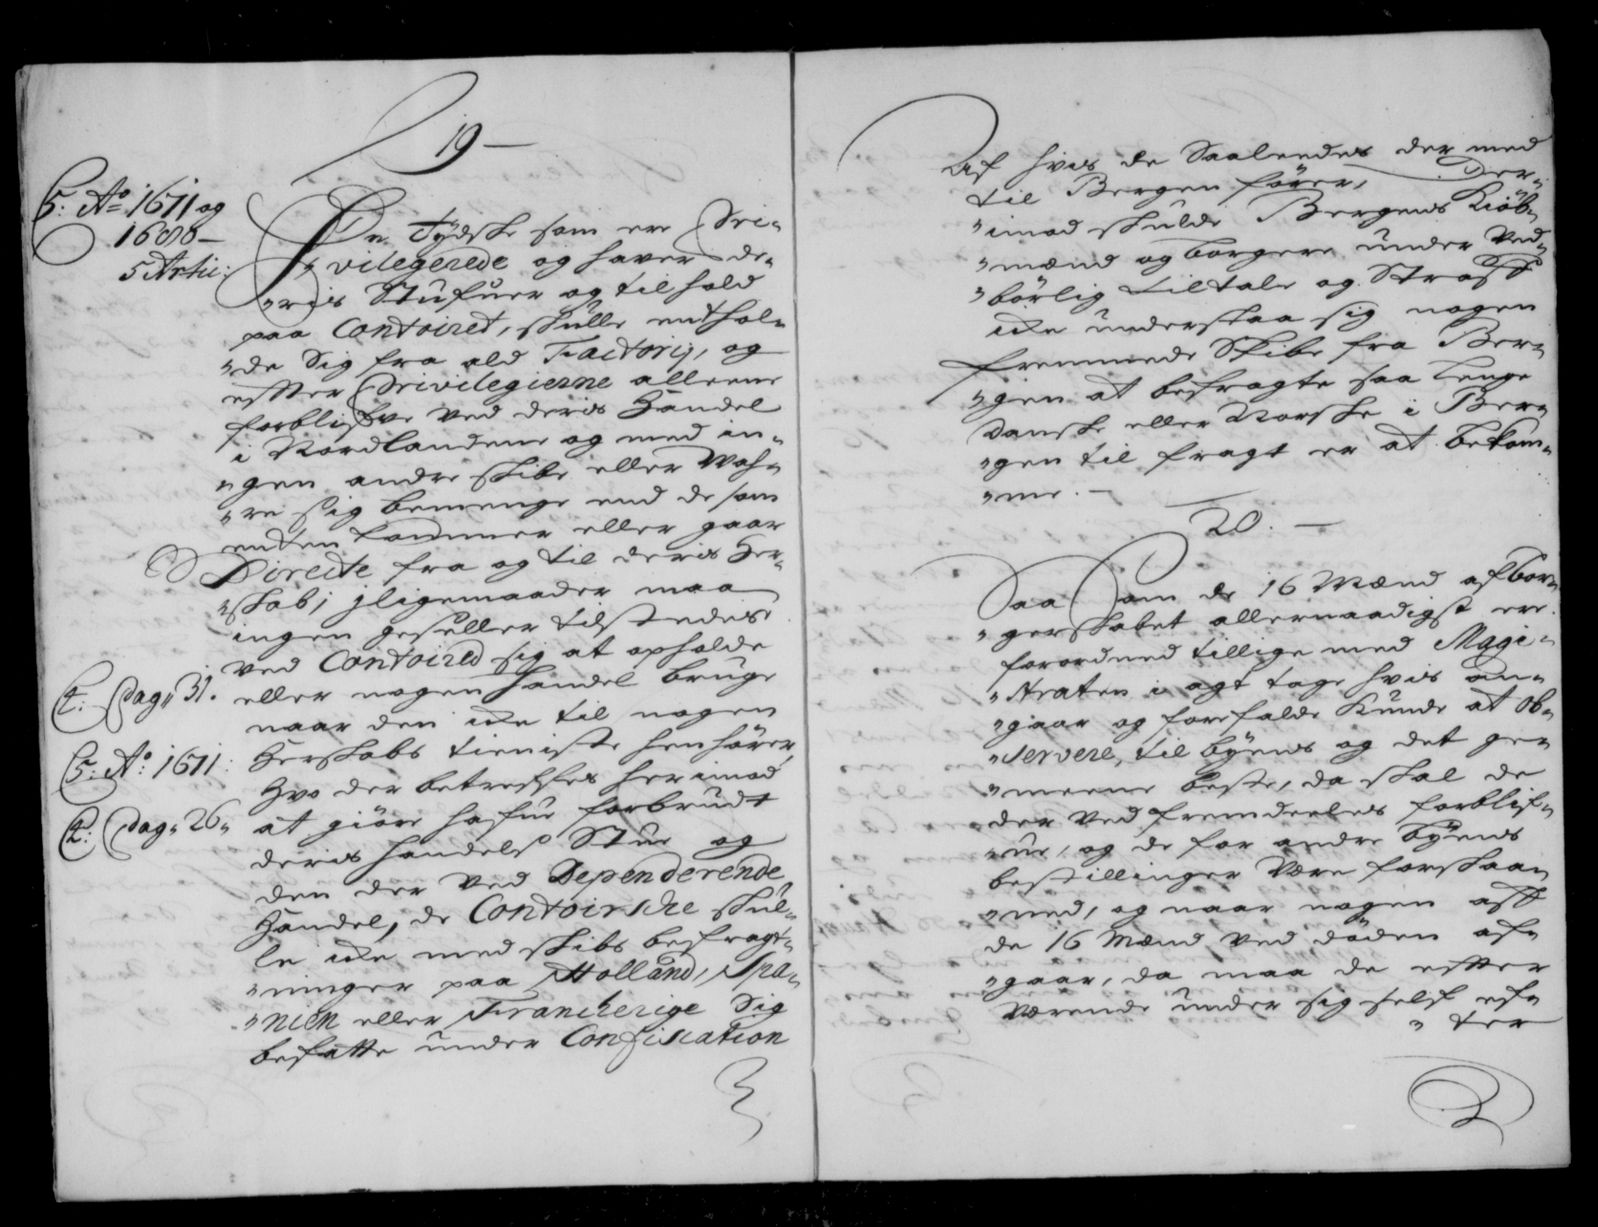 19
5: Aº 1671 og
1680
5 Artic:
De Tydske som ere Pri-
vilegerede og hafver de-
ris Stufuer og tilhold
paa Contoiret, skulle enthol-
de Sig fra ald Factorij, og
efter Privilegierne alleene
forblifve ved deris Handel
i Nordlandene og med in-
gen andre skibe eller Wah-
re sig bemenge end de som
enten kommer eller gaar
Directe fra og til deris Her-
skab; jligemaader maa
ingen geseller tilstedes
ved Contoired sig at opholde
eller nogen handel bruge
naar den icke til nogen
Herskabs tieniste henhører,
Hvo der betreffes herimod
at giøre hafue forbrudt
deris handels Stue og
den der ved Dependerende
Handel, de Contoirske skul-
le icke med skibs befragt-
ninger paa Holland, Spa-
nien eller Franckerige Sig
befatte under Confiscation
2: Pag: 31.
5: Aº: 1671:
2: Pag: 26
Af hvis de Saaleedes der med
til Bergen fører,
Der-
imod skulde Bergens Kiøb-
mænd og borgere under Ved-
børlig tiltale og Straff
icke understaa sig nogen
fremmede Skibe fra Ber-
gen at befragte saa lenge
Danske eller Norske i Ber-
gen til fragt er at bekom-
me.
20.
Saa Som de 16 Mænd af bor-
gerskabet allernaadigst ere
forordned tillige med Magi-
straten i agt tage hvis an-
gaar og forefalde kunde at ob-
servere, til byens og det ge-
meene beste, da skal de
der ved fremdeeles forblif-
ue, og de for andre byens
bestillinger Være forskaan
ned, og naar nogen aff
de 16 Mænd ved døden af-
gaar, da maa de efter
Værende under sig self ef-
ter